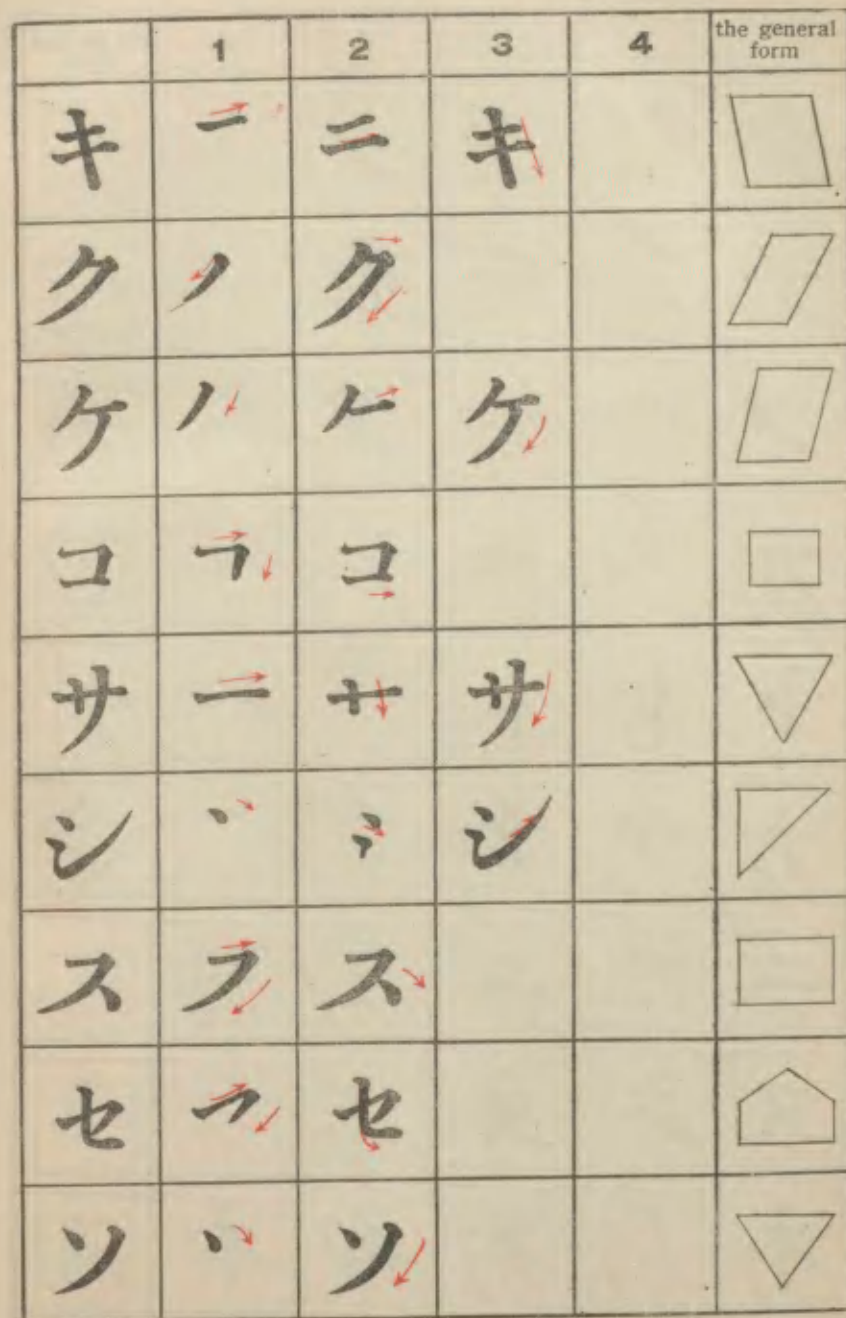 1 2 3 4 the general form
キ 一 ニ キ
ク ノ ク
ケ ノ 𠂉 ケ
コ ㇕ コ
サ 一 十 サ
シ 丶 冫 シ
ス フ ス
セ ㇖ セ
ソ 丶 ソ